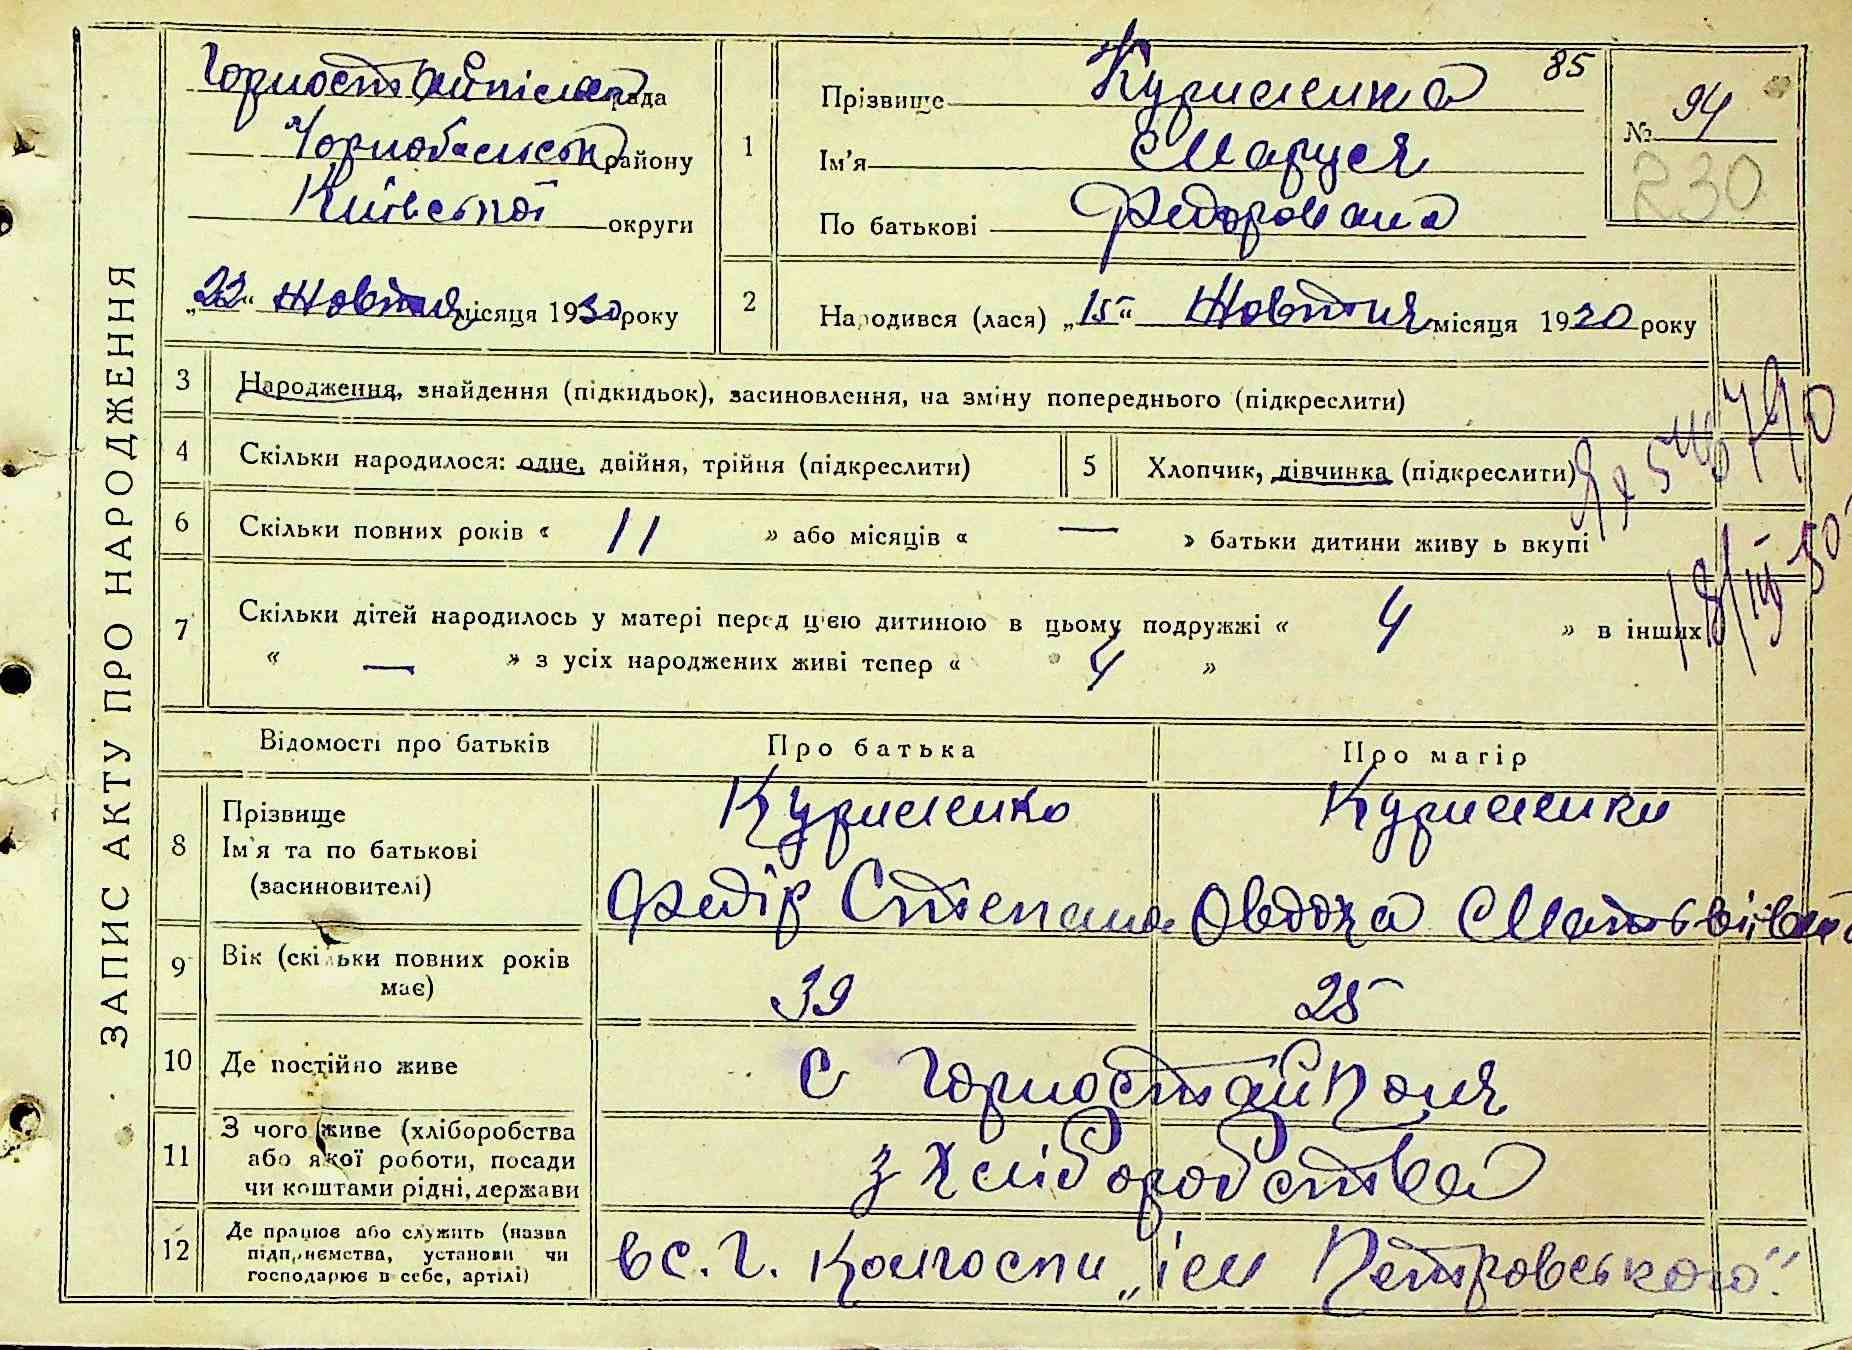 ЗАПИС АКТУ ПРО НАРОДЖЕННЯ
рада
Чорнобильськ району
Київської округи
„22“ Жовтня місяця 1930 року
85
1
Прізвище
Ім'я Маруся
По батькові Федоровна
№ 94
230
2
Народився (лася) „15“ Жовтня місяця 1930 року
3 Народження, знайдення (підкидьок), засиновлення, на зміну попереднього (підкреслити)
4 Скільки народилося: одне, двійня, трійня (підкреслити)
5 Хлопчик, дівчинка (підкреслити)
6 Скільки повних років « 11 » або місяців « — » батьки дитини живу ь вкупі
18/III-50
7 Скільки дітей народилось у матері перед цією дитиною в цьому подружжі « 4 » в інших
« — » з усіх народжених живі тепер « 4 »
Відомості про батьків Про батька Про матір
8 Прізвище
Ім'я та по батькові
(засиновителі)
Федір Степана
Овдоха Матьвіївна
9 Вік (скільки повних років має) 39 25
10 Де постійно живе с Горностайполя
11 З чого живе (хліборобства
або якої роботи, посади
чи коштами рідні, держави
з Хліборобства
12 Де працює або служить (назва
підприємства, установи чи
господарює в себе, артілі)
в с. г. колгоспи „ім Петровського“